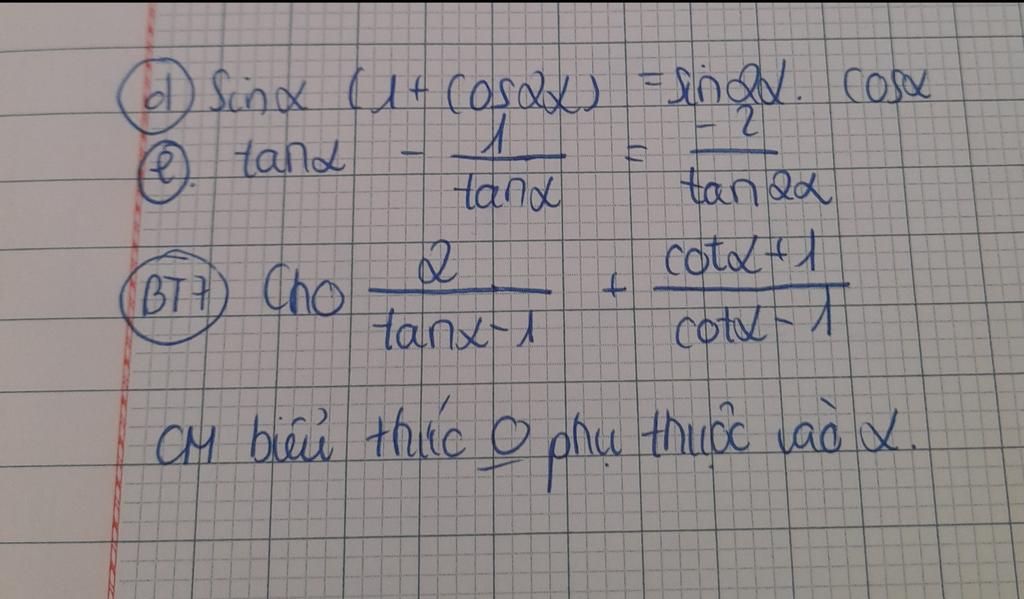 d) sinα (1 + cos2α) = sin2α. cosα
e. tanα - 1/tanα = -2/tan2α
BT7 Cho 2/(tanα-1) + (cotα+1)/(cotα-1)
CM biểu thức O phụ thuộc vaò α.